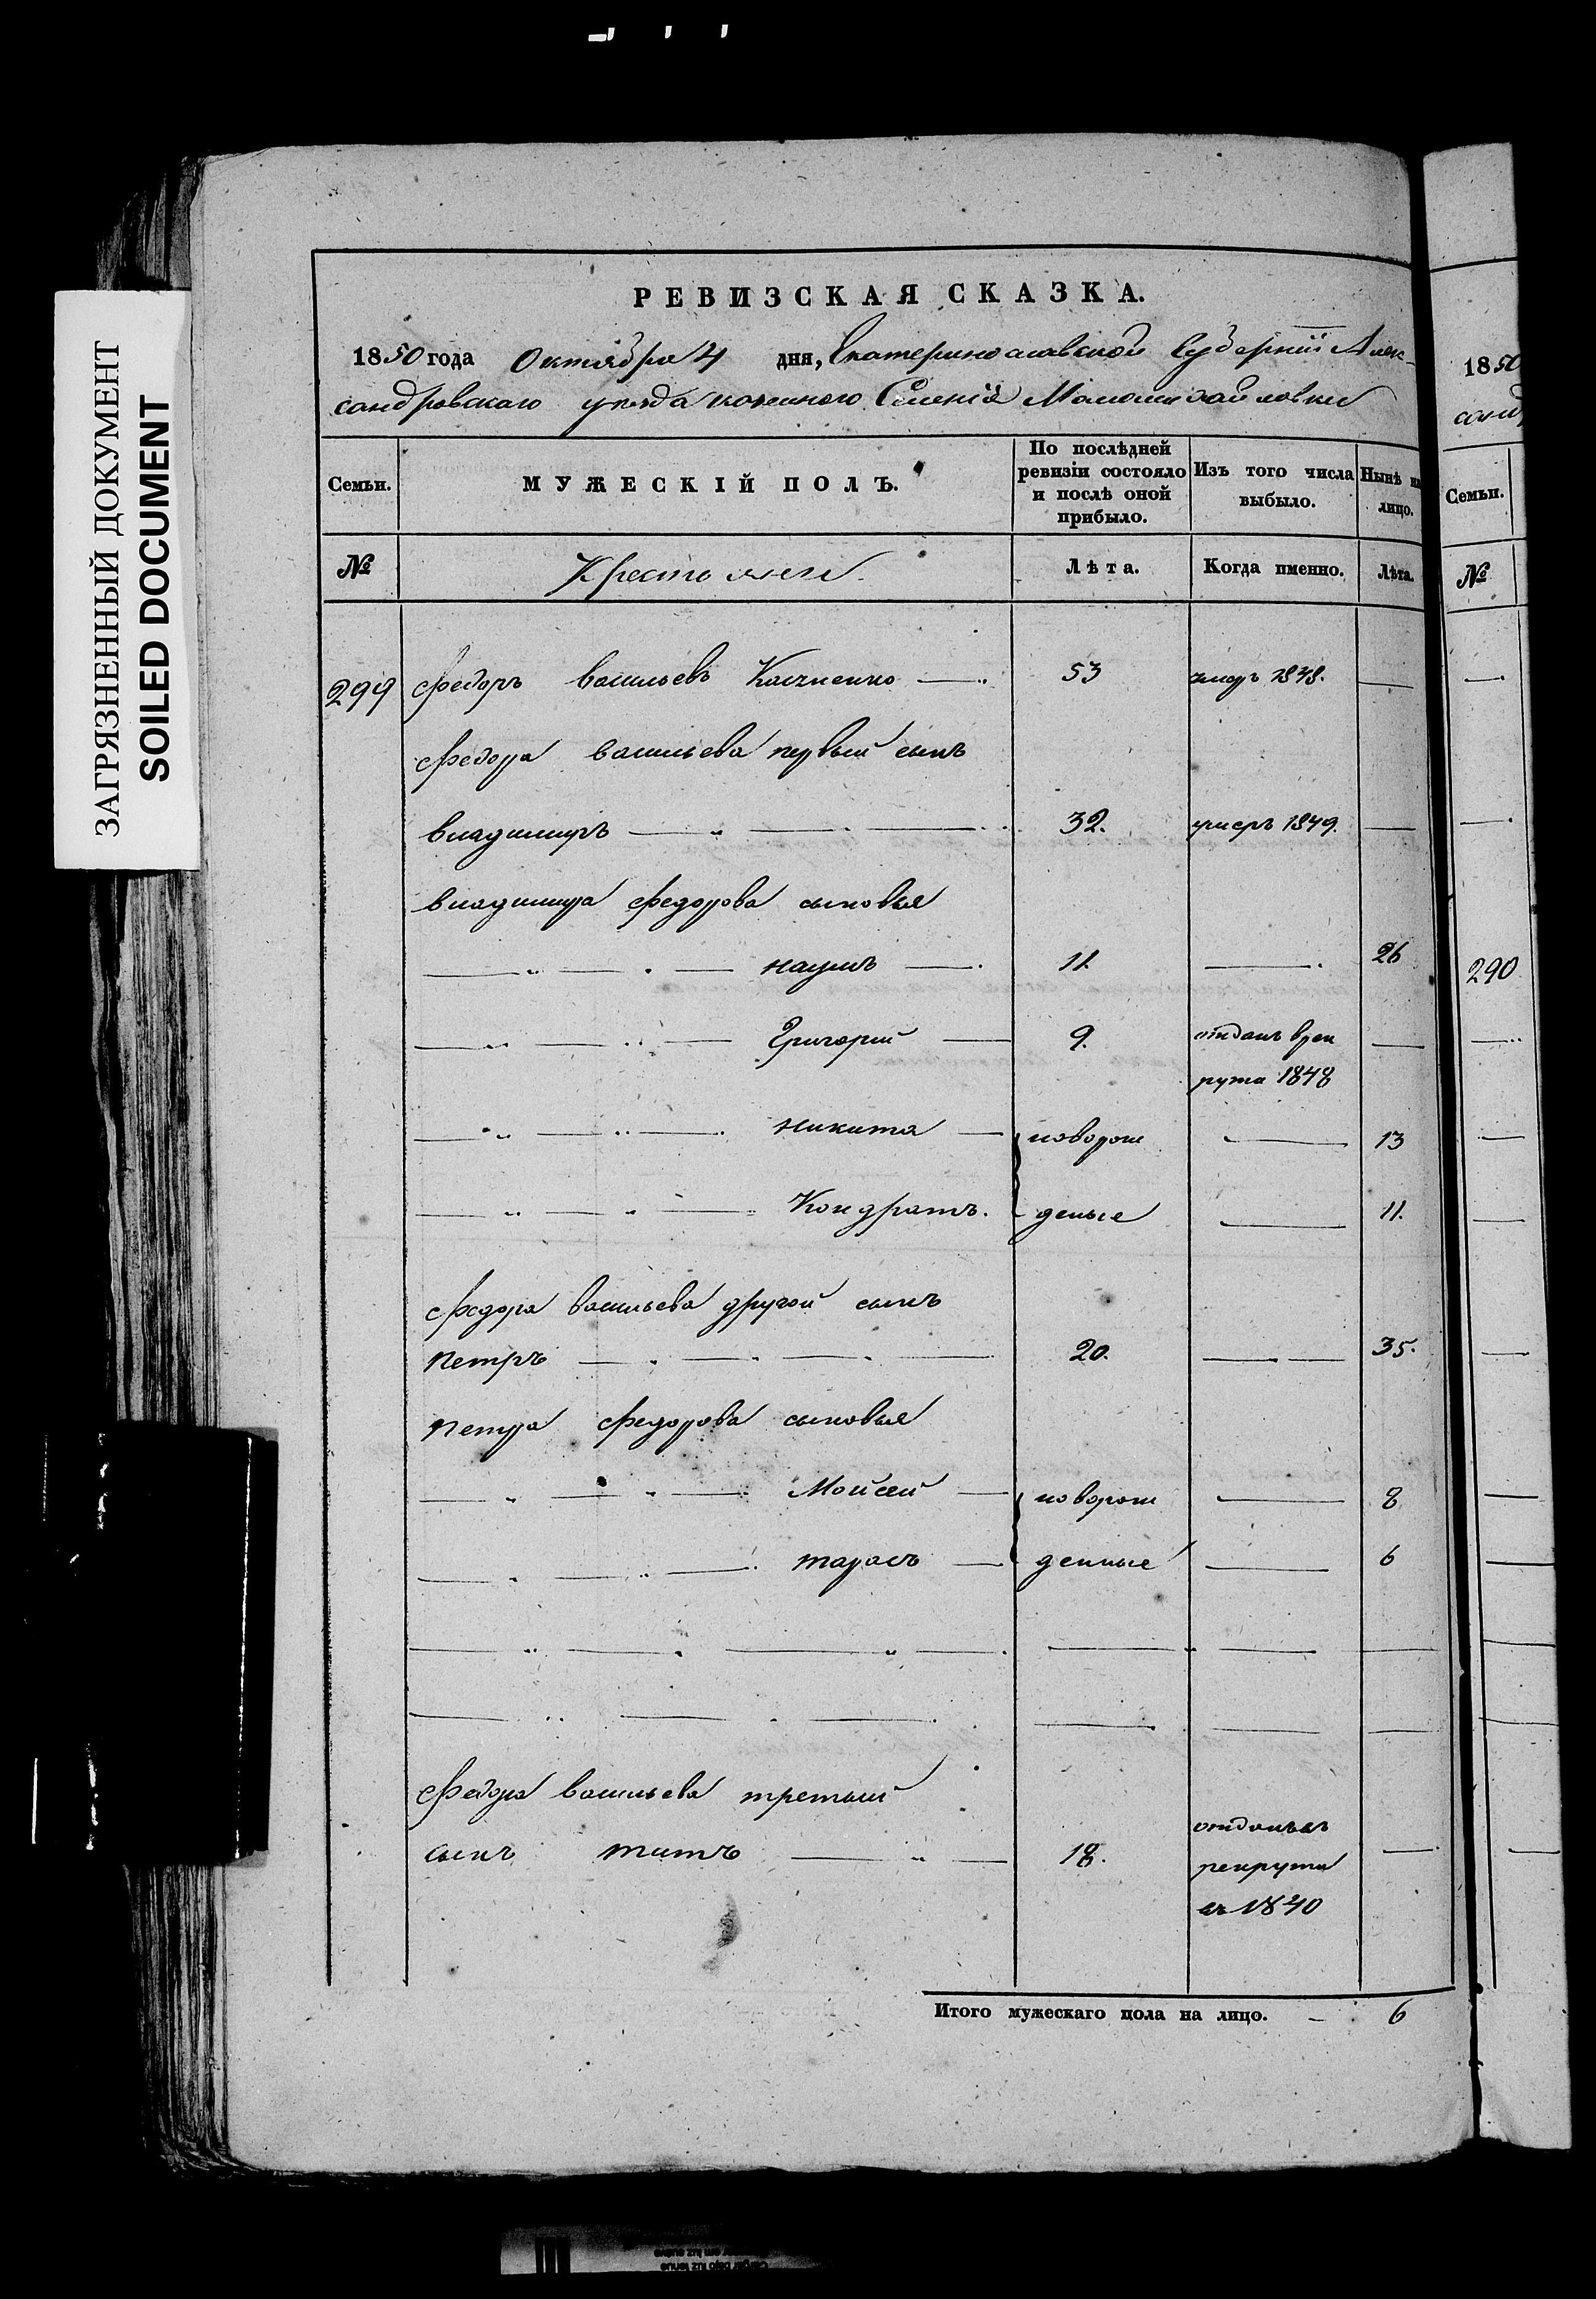 ЗАГРЯЗНЕННЫЙ ДОКУМЕНТ
SOILED DOCUMENT
РЕВИЗСКАЯ СКАЗКА.
1850 года Октября 4 дня, Екатеринославской Губерніи Алек-
сандровскаго уезда казенного Селенія Маломихайловки
Семьи.
МУЖЕСКІЙ ПОЛЪ.
По послѣдней ревизіи состояло и послѣ оной прибыло.
Изъ того числа выбыло.
Нынѣ на лицо.
№
Крестьяне
Лѣта.
Когда именно.
Лѣта.
299 Федоръ Васильевъ 53 умеръ 1838.
Федора Васильева первый сынъ
Владимиръ 32. умеръ 1849.
Владимира Федорова сыновья
Наумъ 11. 26
Григорий 9. отданъ врек
рута 1848
Никита новорож 13
Кондратъ. деные 11.
Федора Васильева другой сынъ
Петръ 20. 35.
Петра Федорова сыновья
Мойсей новорож 8
Тарасъ денные 6
Федора Васильева третий
сынъ Титъ 18. отданъ въ
рекруты
въ 1840
Итого мужескаго пола на лицо. 6
1850
санд
Семьи.
№
290